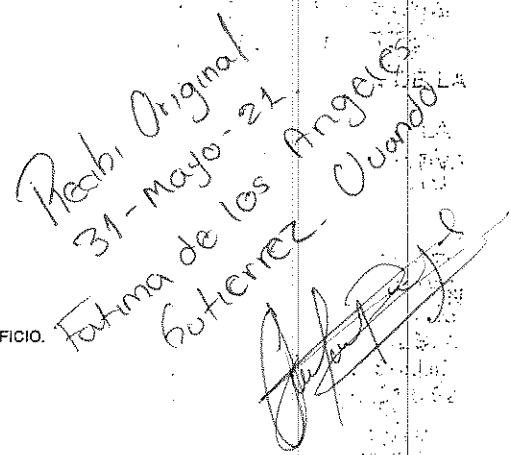 Recibi Original.
31-Mayo-21
Fatima de los Angeles
Gutierrez. Ovando
FICIO.